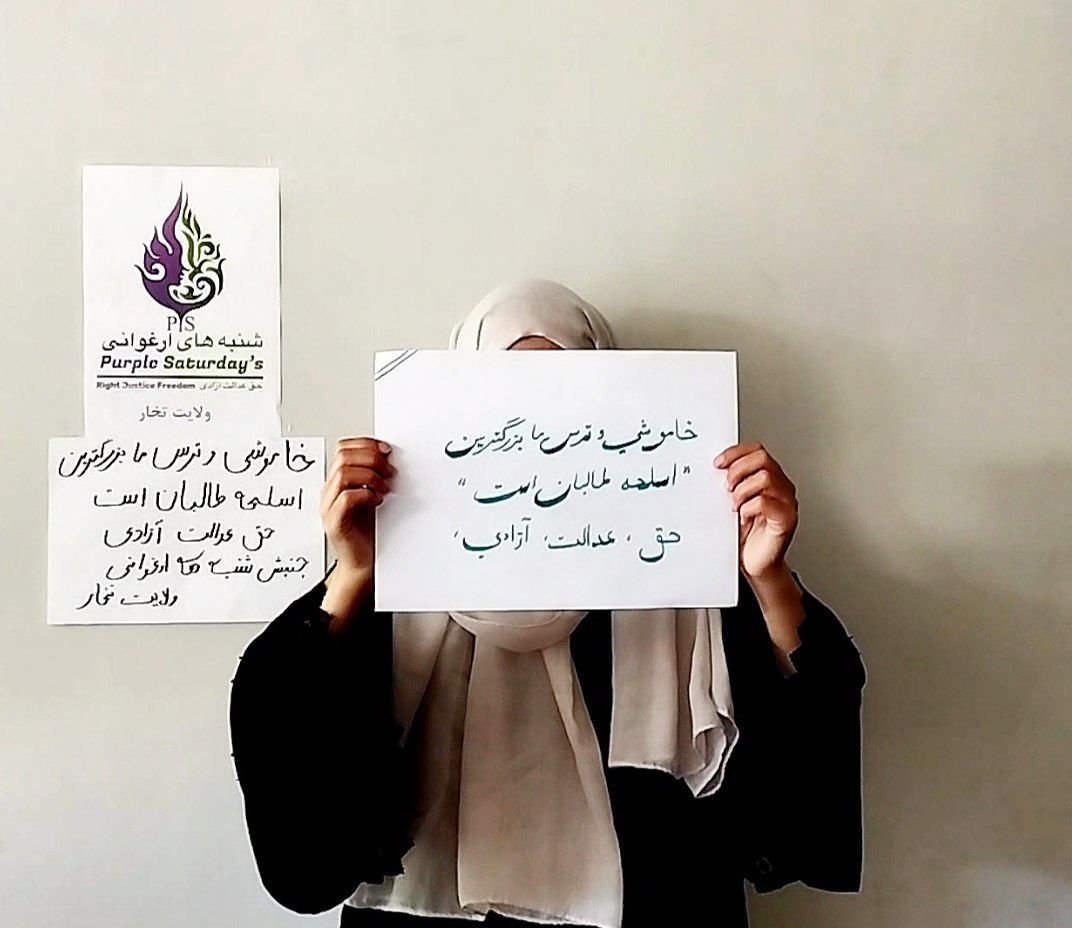 PS
شنبه های ارغوانی
Purple Saturday's
Right Justice Freedom حق عدالت آزادی
ولایت تخار
خاموشی و ترس ما بزرگترین
اسلحه طالبان است
حق عدالت آزادی
جنبش شنبه های ارغوانی
ولایت تخار
خاموشی و ترس ما بزرگترین
"اسلحه طالبان است"
حق ، عدالت، آزادی،